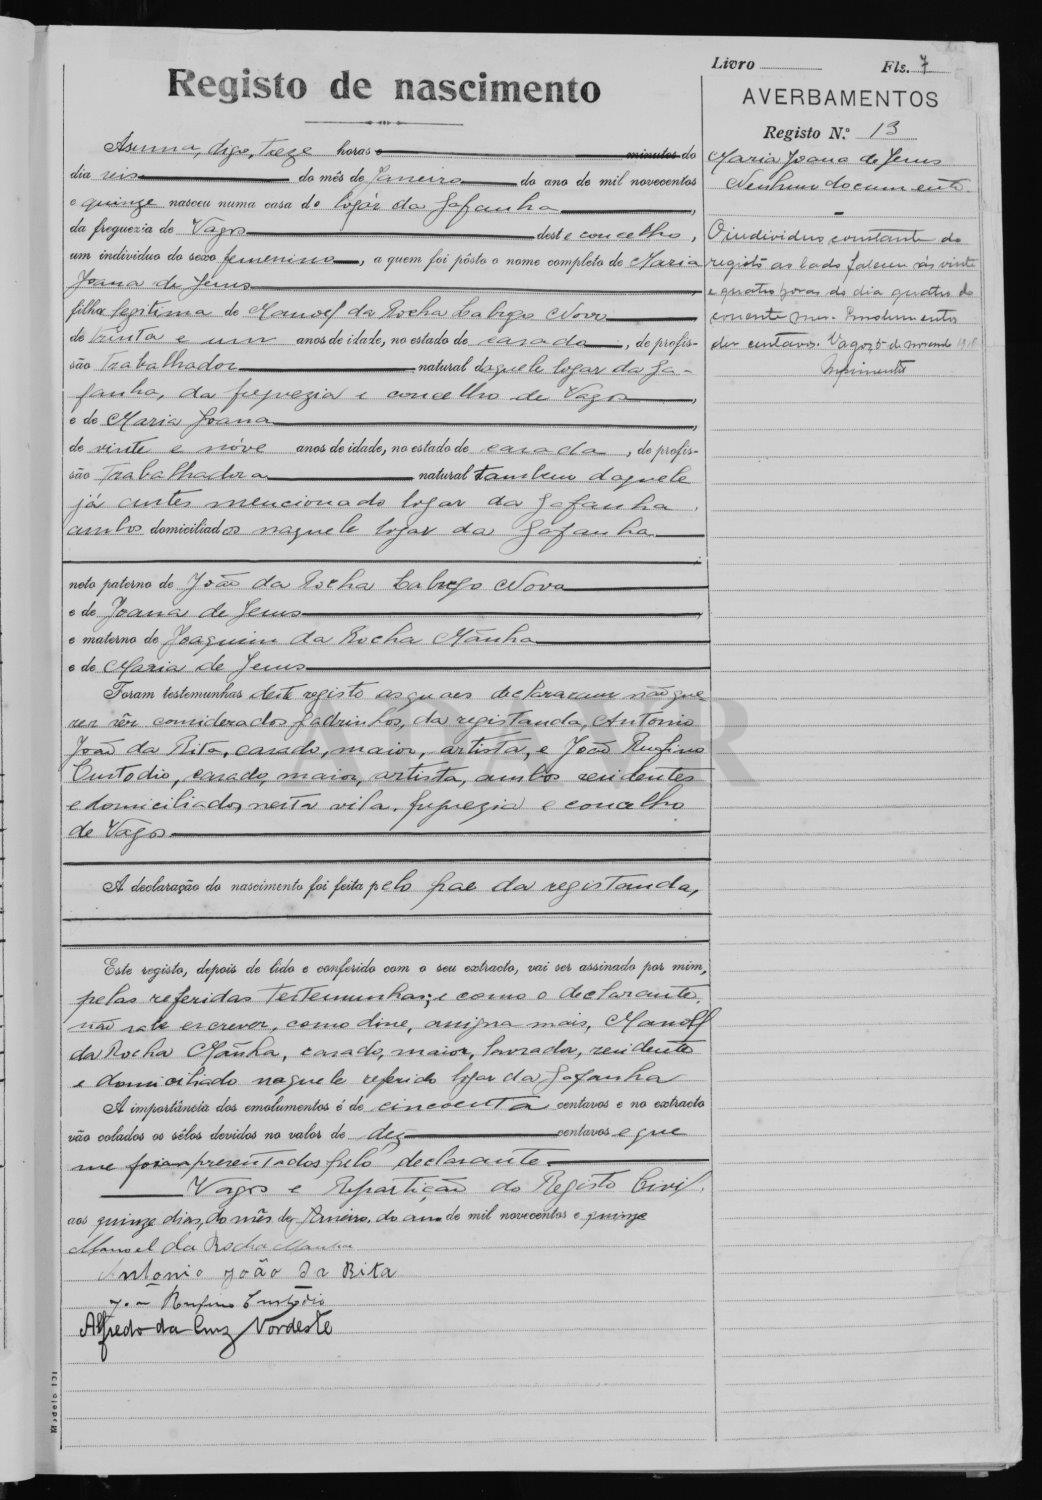 Livro Fls. 7
Registo de nascimento
AVERBAMENTOS
Registo N.º 13
Maria Joana de Jesus
Nenhum documento.
O individuo constante do
registo ao lado faleceu ás vinte
e quatro horas do dia quatro do
corrente mez. Emolumentos
dez centavos. Vagos, 5 de novembro 1918
Asuma, digo, treze horas e minutos do
dia seis do mês de Janeiro do ano de mil novecentos
e quinze nasceu numa casa do logár da Gafanha,
da freguezia de Vagos deste concelho,
um individuo do sexo femenino, a quem foi pôsto o nome completo de Maria
Joana de Jesus
filha legitima de Manoel da Rocha Labrego Novo
de trinta e um anos de idade, no estado de casado, de profis-
são trabalhador natural daquele logar da Ga-
fanha, da freguezia e concelho de Vagos,
e de Maria Joana,
de vinte e nóve anos de idade, no estado de casada, de profis-
são trabalhadora natural tambem daquele
já antes mencionado logar da Gafanha.
ambos domiciliados naquele logar da Gafanha
neto paterno de João da Rocha Labrego Novo
e de Joana de Jesus,
e materno de Joaquim da Rocha Mãnha
e de Maria de Jesus
Foram testemunhas deste registo as quaes declararam não que-
rer sêr considerados padrinhos, da registanda, Antonio
João da Rita, casado, maior, artista, e João Rufino
Custodio, casado, maior, artista, ambos residentes
e domiciliados, nesta vila, freguezia e concelho
de Vagos
A declaração do nascimento foi feita pelo pae da registanda,
Este registo, depois de lido e conferido com o seu extracto, vai ser assinado por mim,
pelas referidas testemunhas; e como o declarante,
não sabe escrever, como disse, assigna mais, Manoel
da Rocha Mãnha, casado, maior, lavrador, residente
e domiciliado naquele referido logar da Gafanha
A importância dos emolumentos é de cincoenta centavos e no extracto
vão colados os sêlos devidos no valor de dez centavos e que
me foram apresentados pelo declarante.
Vagos e Repartição do Registo Civil.
aos quinze dias, do mês de Janeiro, do ano de mil novecentos e quinze
Manoel da Rocha Manha
Antonio João Da Rita
João Rufino Custodio
Alfredo da Cruz Nordeste
Modelo 131
ADAVR